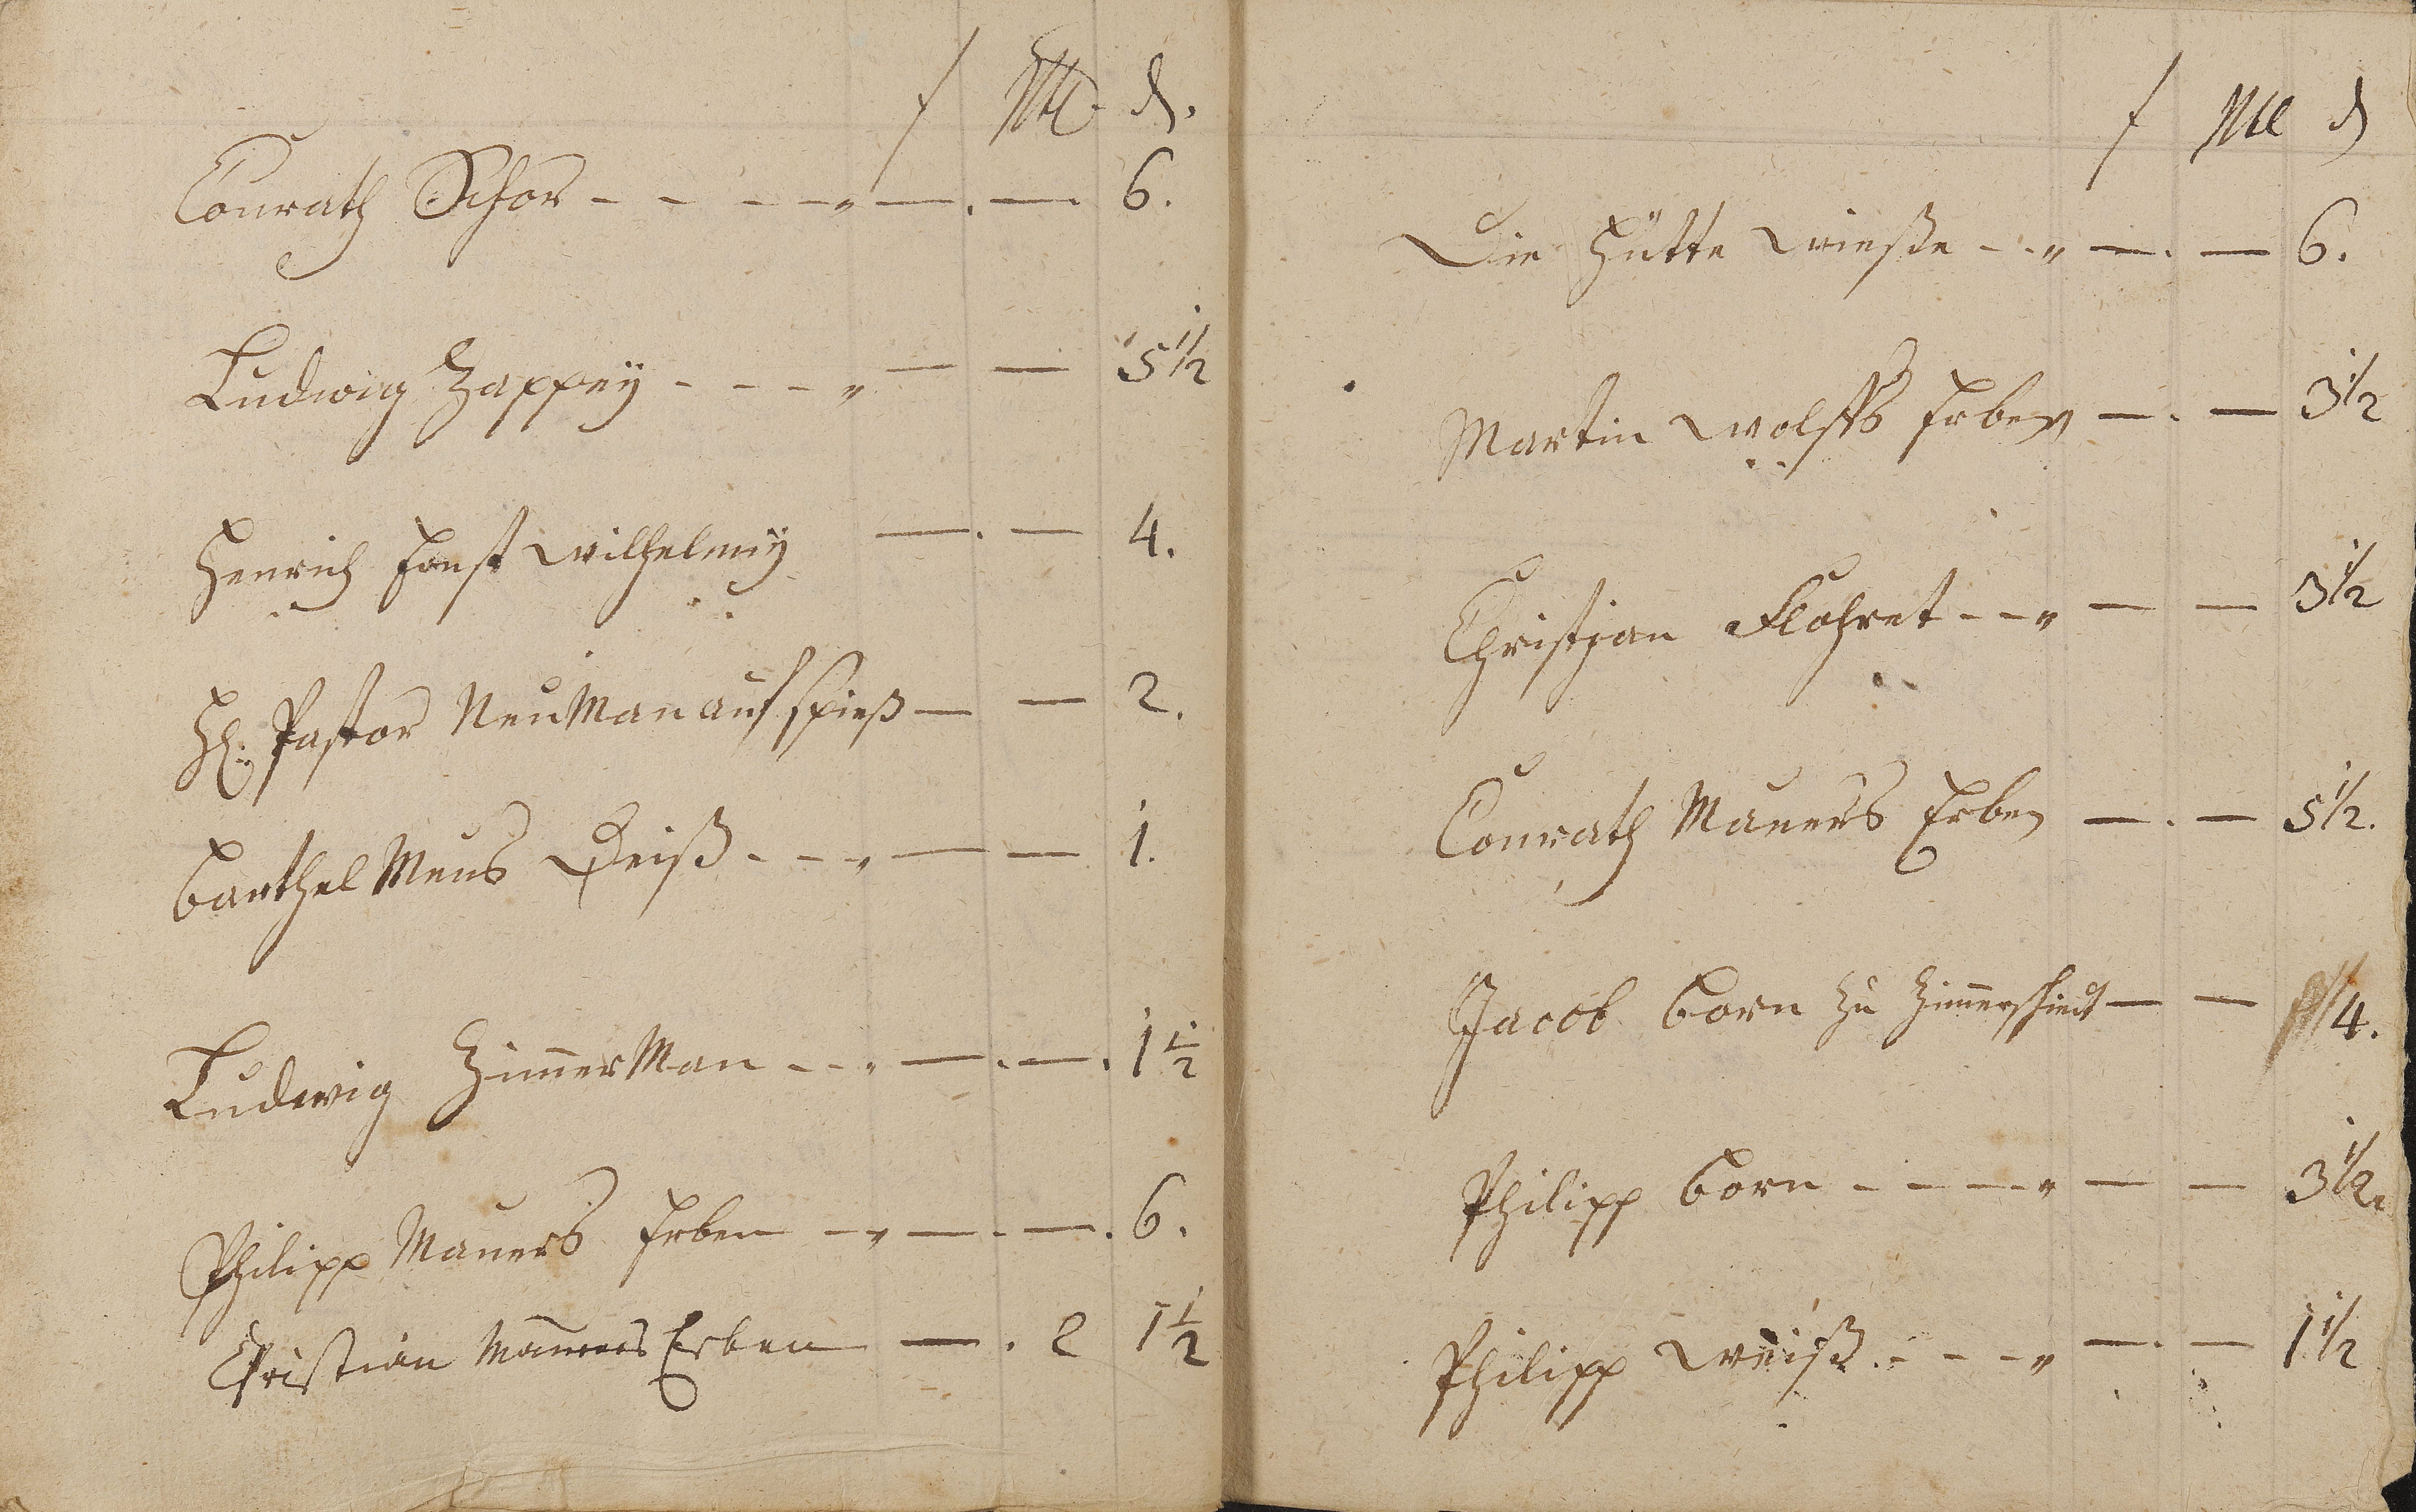 f Ml. d.
Conrath Schor - - - - - — . — 6.
Ludwig Zappey - - - - — — 5 1/2
Henrich Ernst Wilhelmy — . — 4.
H. Pastor NeuMan auf spieß — — 2.
BarthelMeus Deiß - - - — — 1.
Ludwig ZimmerMan - - - — . — . 1 1/2
Philipp Maurers Erben - - — . — . 6.
Christian Maurers Erben — . 2 1 1/2
f Ml d
Die Hütte Wieße - - - — . — 6.
Martin Wolffs Erben — . — 3 1/2
Christian Flohret - - - — — 3 1/2
Conrath Maurers Erben — . — 5 1/2.
Jacob Born zu Zimmerschiedt — — 1/4.
Philipp Born - - - - - — — 3 1/2.
Philipp Weiß - - - - — . — 1 1/2